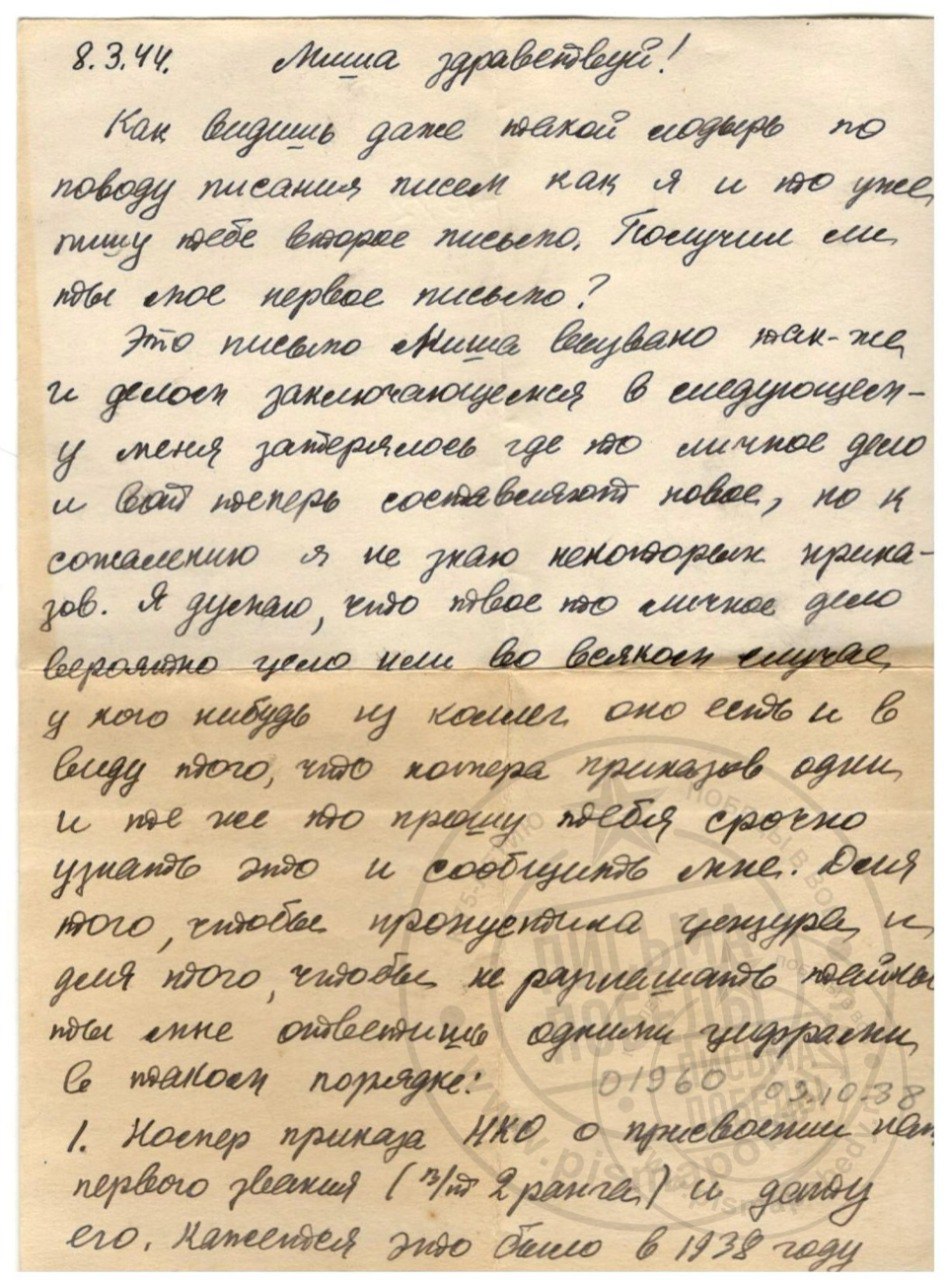 8.3.44. Миша здравствуй!
Как видишь даже такой лодырь по
поводу писания писем как я и то уже
пишу тебе второе письмо. Получил ли
ты мое первое письмо?
Это письмо Миша вызвано так-же
и делом заключающемся в следующем-
у меня затерялось где то личное дело
и вот теперь составляют новое, но к
сожалению я не знаю некоторых прика-
зов. Я думаю, что твое то личное дело
вероятно цело или во всяком случае
у кого нибудь из коллег оно есть и в
виду того, что номера приказов одни
и те же то прошу тебя срочно
узнать это и сообщить мне. Для
того, чтобы пропустила цензура и
для того, чтобы не разглашать тайны
ты мне ответишь одними цифрами
в таком порядке: 01960 03.10.38
1. Номер приказа НКО о присвоении нам
первого звания (в/т 2 ранга) и дату
его. Кажется это было в 1938 году
ПИСЬМА
ПОБЕДЫ
www.pismapobedy.ru